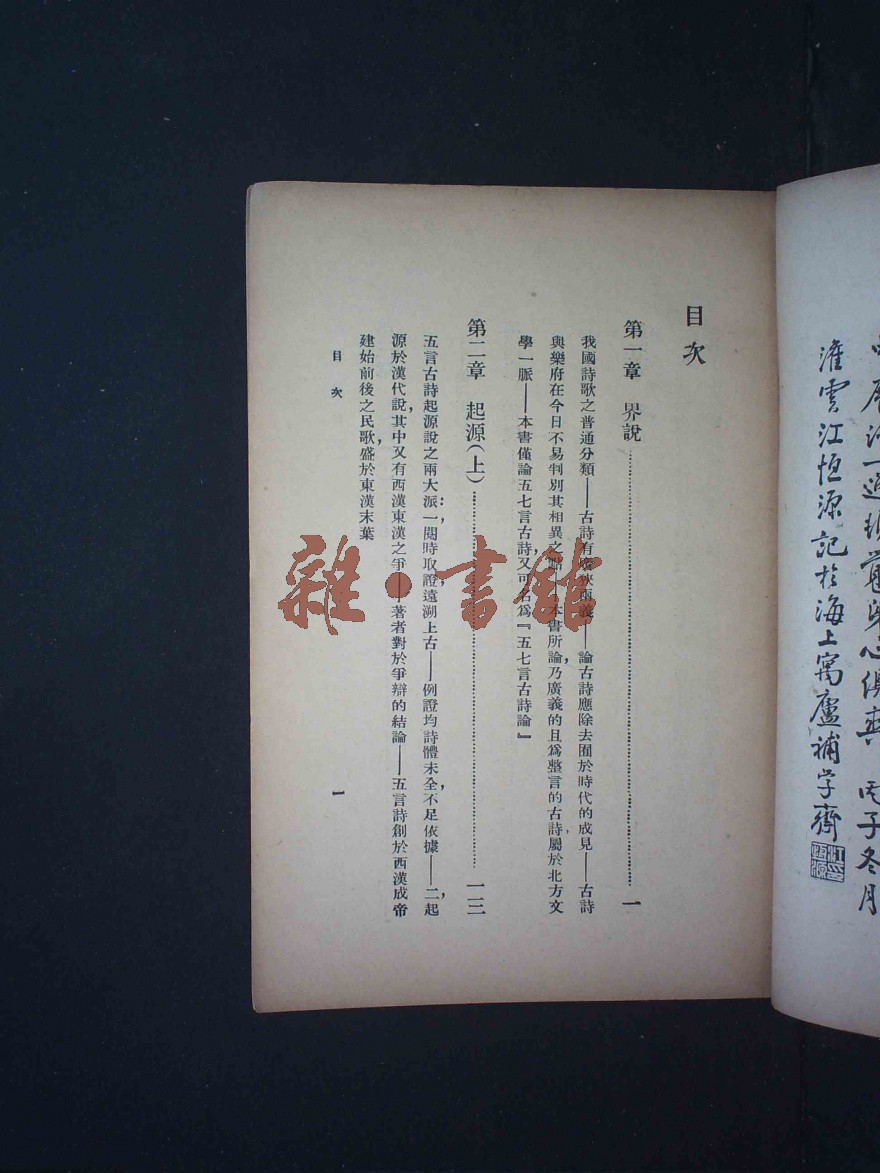 灌雲江恒源記於海上寓廬補学齋
目次
第一章 界說……一
我國詩歌之普通分類——古詩有廣狹兩義——論古詩應除去囿於時代的成見——古詩
與樂府在今日不易判別其相異之點——本書所論,乃廣義的且爲整言的古詩,屬於北方文
學一脈——本書僅論五七言古詩,又可名爲『五七言古詩論』
第二章 起源(上)……一三
五言古詩起源說之兩大派:一,閱時取證,遠溯上古——例證均詩體未全,不足依據——二,起
源於漢代說,其中又有西漢東漢之爭——著者對於爭辯的結論——五言詩創於西漢成帝
建始前後之民歌,盛於東漢末葉
目次
一
雜·書館